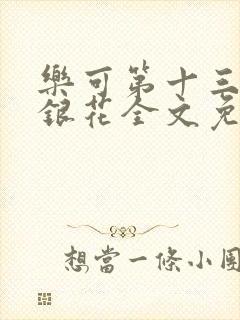 樂可第十三
銀花全文免
想當一條小團